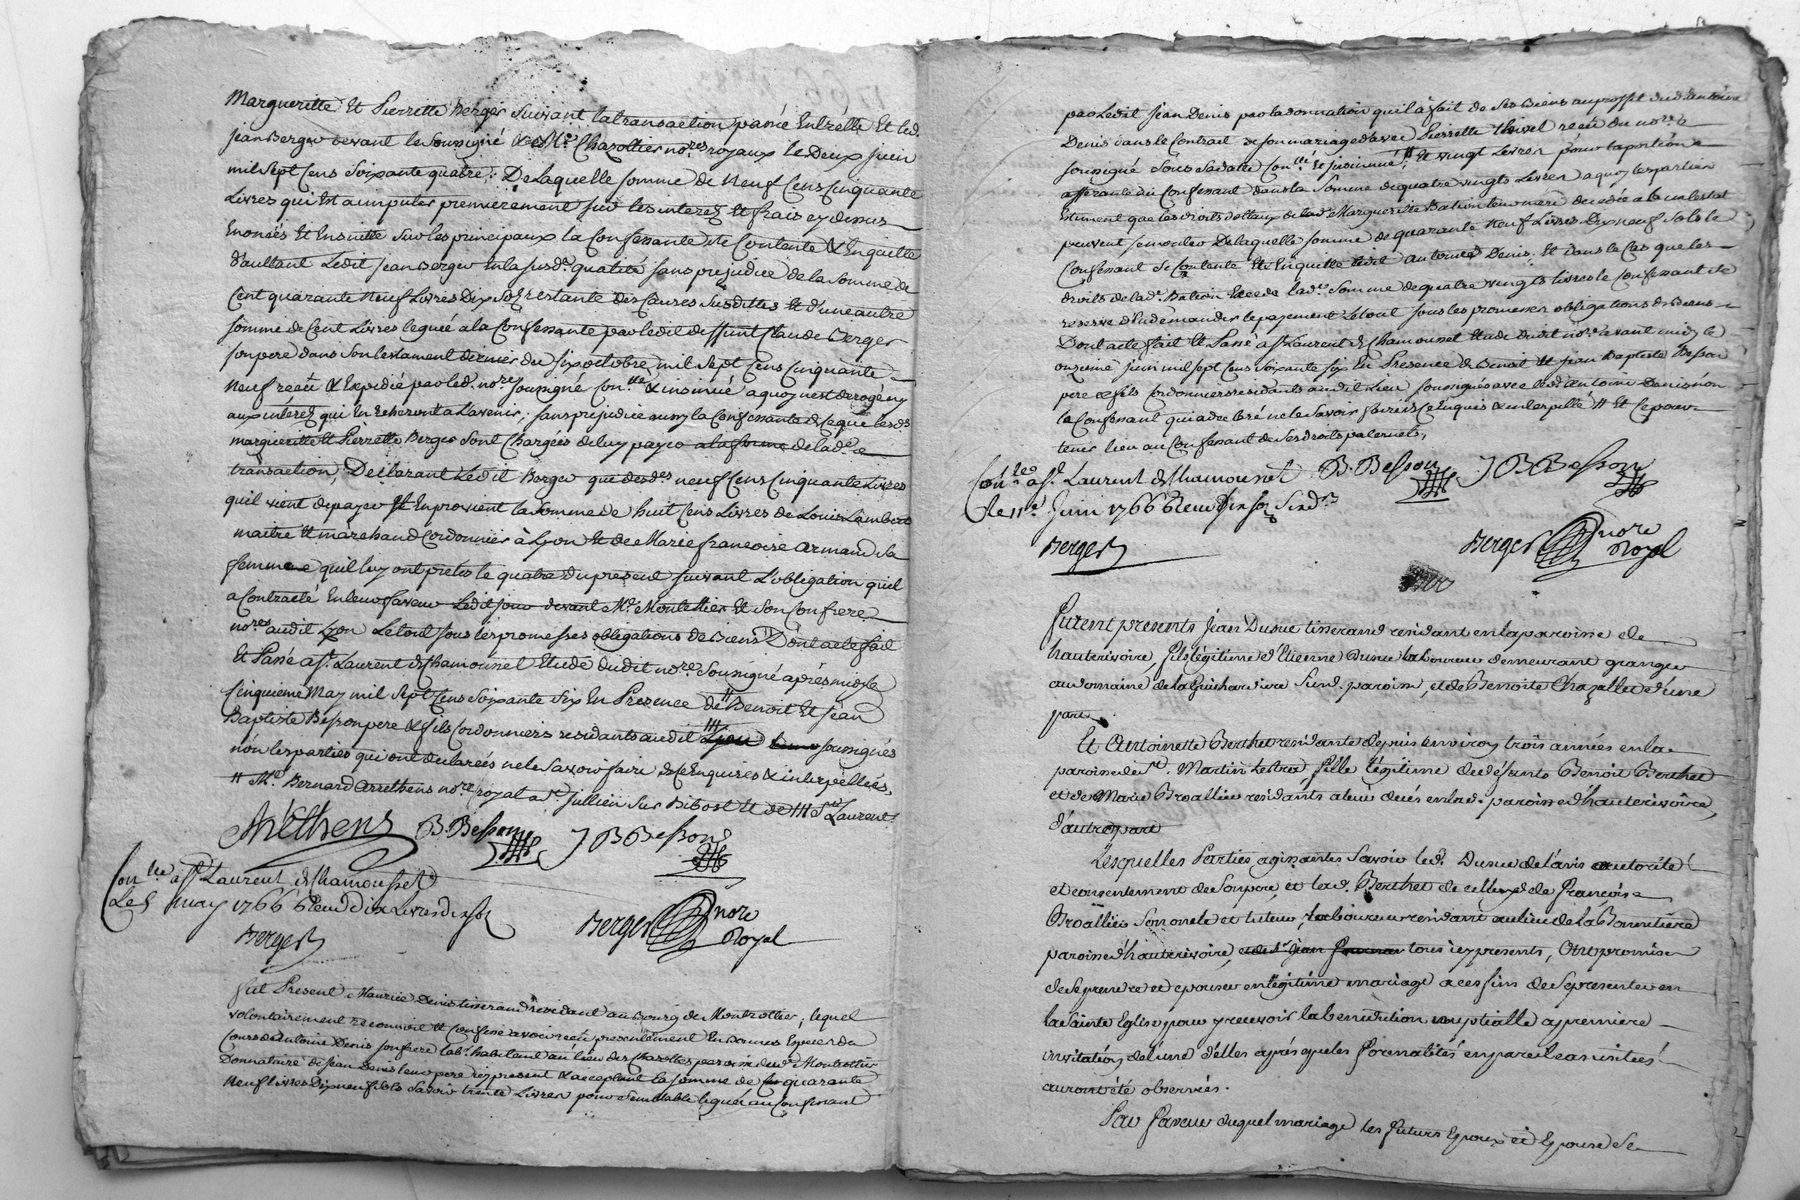 Margueritte Et Pierrette Berger Suivant la transaction passée Entrelle Et led.
jean Berger devant le Soussigné & Me Chazottier nores royaux le Deux juin
mil sept Cens Soixante quatre ; De laquelle somme de Neuf Cens Cinquante
Livres qui Est a imputer premierement sur les interez Et frais cy dessus
Enoncés Et Ensuitte sur les principaux la Confessante se Contente & Enquitte
d'autant Ledit jean Berger En la susd. qualité sans prejudice de la somme de
Cent quarante Neuf Livres Dix Sols restante des Causes Susdittes Et d'une autre
somme de Cent Livres leguée a la Confessante par ledit deffunt Claude Berger
son pere dans Son testament dernier du six octobre mil sept Cens Cinquante
Neuf receu & Expedié par led. nore soussigné Con.lle & insinué a quoy n'est derogé ny
aux interez qui En Echerront a L'avenir ; sans prejudice aussy la Confessante de Ce que lesds
marguerite Et Pierrette Berger sont Chargées de luy payer a la forme de lad.
transaction ; Declarant Ledit Berger que desds neuf Cens Cinquante Livres
qu'il vient de payer Il En provient la Somme de huit Cens Livres de Louis Lambert
maitre Et marchand Cordonnier à Lyon Et de Marie francoise Armand sa
femme qu'il luy ont pretés le quatre du present suivant L'obligation qu'il
a Contracté En leur faveur Ledit jour devant Me Montellier Et son Confrere
nores audit Lyon Le tout sous les promesses obligations de Biens Dont acte fait
Et Passé a St Laurent de Chamousset Etude dudit nore Soussigné après midy le
Cinquieme May mil Sept Cens Soixante Six En Presence de # Benoit Et jean
Baptiste Besson pere & fils Cordonniers residants audit soussignés
non les parties qui ont declarées ne le Savoir faire de Ce Enquises & interpellées,
# Me Bernard Arrethens nore royal a St jullien sur Bibost Et de St Laurent
Arrethens B. Besson J B Besson
Con lle a St Laurent de Chamousset
Le 5 may 1766
Berger Berger nore
Royal
fut Present Maurice Denis tisserand residant au Bourg de Montrottier, lequel
volontairement reconnoit Et Confesse avoir receu presentement En bonnes Especes du
Cours d'antoine Denis son frere lab. habitant au lieu des paroisse dud. Montrottier
Donnataire de jean Denis leur pere icy present & acceptant la somme de quarante
Neuf livres Dix neuf sols Savoir trente Livres pour semblable leguée au Confessant
par Ledit jean Denis par la donnation qu'il a fait de Ses Biens au proffit dud. antoine
Denis dans le Contrat de son mariage avec Pierrette receu du nore
soussigné sous sa datte Con.llé Et insinué # Et vingt Livres pour la portion
afferante du Confessant dans la somme de quatre vingts Livres a quoy les parties
Estiment que les droits dottaux de lad. Marguerite Bation leur mere decedée ab intestat
peuvent se monter De laquelle somme de quarante Neuf Livres Dix neuf Sols le
Confessant se Contente Et Enquitte ledit antoine Denis. Et dans le Cas que les
droits de lad. Bation Excede lad. somme de quatre vingts livres le Confessant se
reserve d'En demander le payement Le tout sous les promesses obligations de Biens
Dont acte fait Et Passé a St Laurent de Chamousset Etude dudit nore avant midy le
onzieme juin mil sept Cens Soixante Six En Presence de Benoit Et jean Baptiste Besson
pere & fils Cordonniers residants audit Lieu soussignés avec led. antoine Denis non
le Confessant qui a declaré ne le Savoir faire de Ce Enquis & interpellé # Et Ce pour
tenir lieu au Confessant de Ses droits paternels,
Con lle a St Laurent de Chamousset B. Besson J B Besson
Le 11e Juin 1766
Berger Berger nore
Royal
Furent presents Jean Dusuc tisserand residant en la paroisse de
hauterivoire, fils légitime d'Etienne Dusuc laboureur demeurant granger
au domaine de la Guichardiere susd. paroisse, et de Benoite Chazallet d'une
part
Et Antoinette Berthet residante depuis environ trois années en la
paroisse de St. Martin Lestra fille légitime de défunts Benoit Berthet
et de Marie Broallier residants a leur deces en lad. paroisse d'hauterivoire,
d'autre part
Lesquelles Parties agissantes Savoir led. Dusuc de l'avis autorité
et consentement de Son pere, et lad. Berthet de celluy de François
Broallier Son oncle et tuteur, laboureur residant au lieu de la Bonnitiere
paroisse d'hauterivoire, tous icy presents, Ont promis
de se prendre et epouser en légitime mariage a ces fins de se presenter en
la Sainte Eglise pour y recevoir la benediction nuptialle a premiere
invitation de l'une d'elles après que les formalités en pareil cas usitées
auront été observées.
En faveur duquel mariage les futurs Epoux et Epouse Se